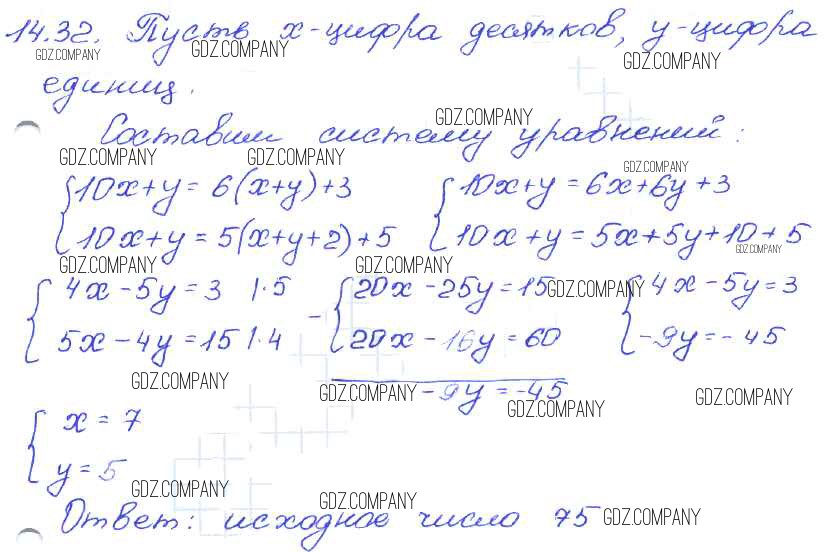 14.32. Пусть x-цифра десятков, y-цифра
GDZ.COMPANY GDZ.COMPANY GDZ.COMPANY
единиц.
GDZ.COMPANY
Составим систему уравнений:
GDZ.COMPANY GDZ.COMPANY GDZ.COMPANY
{10x+y=6(x+y)+3 {10x+y=6x+6y+3
10x+y=5(x+y+2)+5 10x+y=5x+5y+10+5
GDZ.COMPANY GDZ.COMPANY GDZ.COMPANY
{4x-5y=3 |·5 -{20x-25y=15 GDZ.COMPANY {4x-5y=3
5x-4y=15 |·4 20x-16y=60 -9y=-45
GDZ.COMPANY GDZ.COMPANY -9y=-45 GDZ.COMPANY GDZ.COMPANY
{x=7
y=5
GDZ.COMPANY GDZ.COMPANY
Ответ: исходное число 75 GDZ.COMPANY